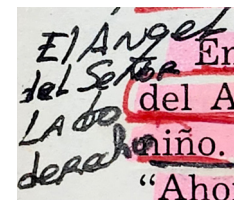 El Angel
del Señor
Lado
derecho
En
del A
niño.
“Aho